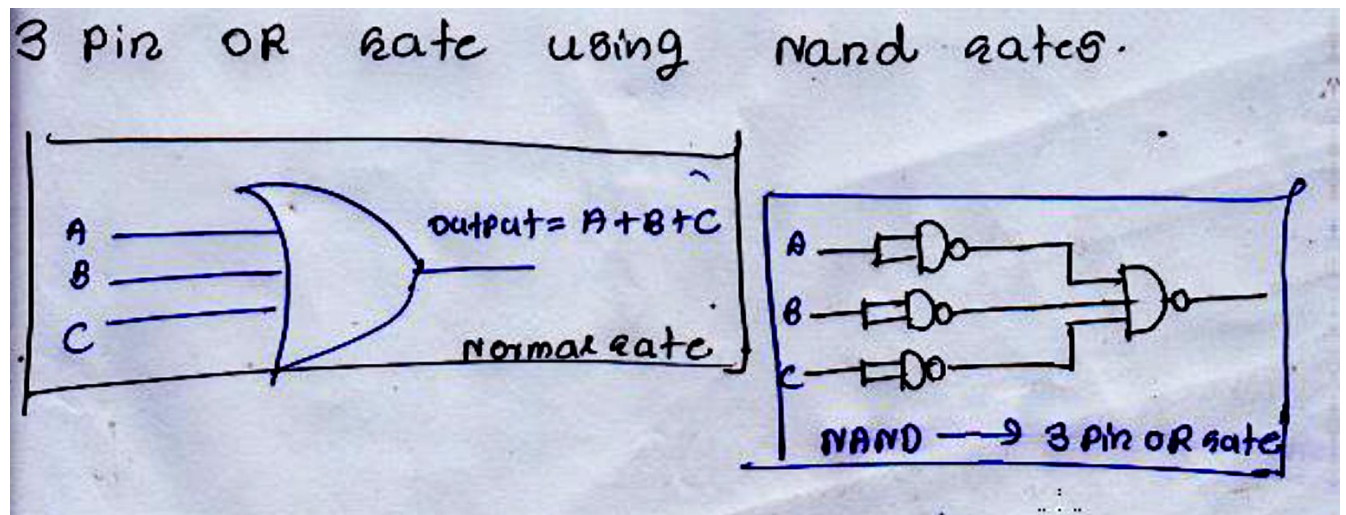 3 Pin OR Gate using Nand Gates.
A
B
C
Output = A+B+C
Normal Gate
A
B
C
NAND → 3 Pin OR Gate